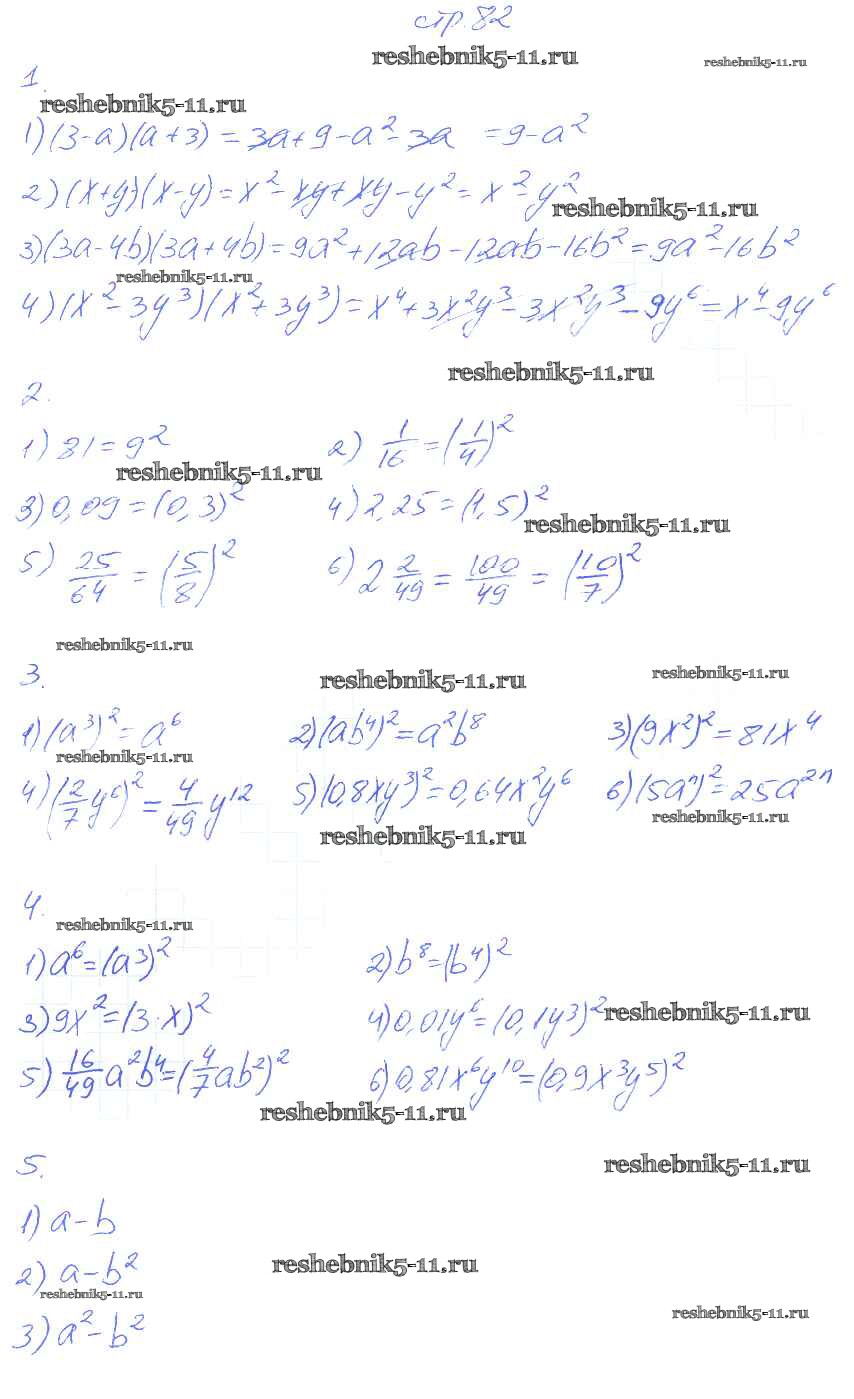 стр. 82
reshebnik5-11.ru
reshebnik5-11.ru
1.
reshebnik5-11.ru
1) (3-a)(a+3) = 3a+9-a²-3a = 9-a²
2) (x+y)(x-y) = x²-xy+xy-y² = x²-y²
reshebnik5-11.ru
3) (3a-4b)(3a+4b) = 9a²+12ab-12ab-16b² = 9a²-16b²
reshebnik5-11.ru
4) (x²-3y³)(x²+3y³) = x⁴+3x²y³-3x²y³-9y⁶ = x⁴-9y⁶
reshebnik5-11.ru
2.
1) 81 = 9² 2) 1/16 = (1/4)²
reshebnik5-11.ru
3) 0,09 = (0,3)² 4) 2,25 = (1,5)²
reshebnik5-11.ru
5) 25/64 = (5/8)² 6) 2 2/49 = 100/49 = (10/7)²
reshebnik5-11.ru
3.
reshebnik5-11.ru
reshebnik5-11.ru
1) (a³)² = a⁶ 2) (ab⁴)² = a²b⁸ 3) (9x²)² = 81x⁴
reshebnik5-11.ru
4) (2/7 y⁶)² = 4/49 y¹² 5) (0,8xy³)² = 0,64x²y⁶ 6) (5aⁿ)² = 25a²ⁿ
reshebnik5-11.ru
reshebnik5-11.ru
4.
reshebnik5-11.ru
1) a⁶ = (a³)² 2) b⁸ = (b⁴)²
3) 9x² = (3·x)² 4) 0,01y⁶ = (0,1y³)²
reshebnik5-11.ru
5) 16/49 a²b⁴ = (4/7 ab²)² 6) 0,81x⁶y¹⁰ = (0,9x³y⁵)²
reshebnik5-11.ru
5.
reshebnik5-11.ru
1) a-b
2) a-b²
reshebnik5-11.ru
reshebnik5-11.ru
3) a²-b²
reshebnik5-11.ru